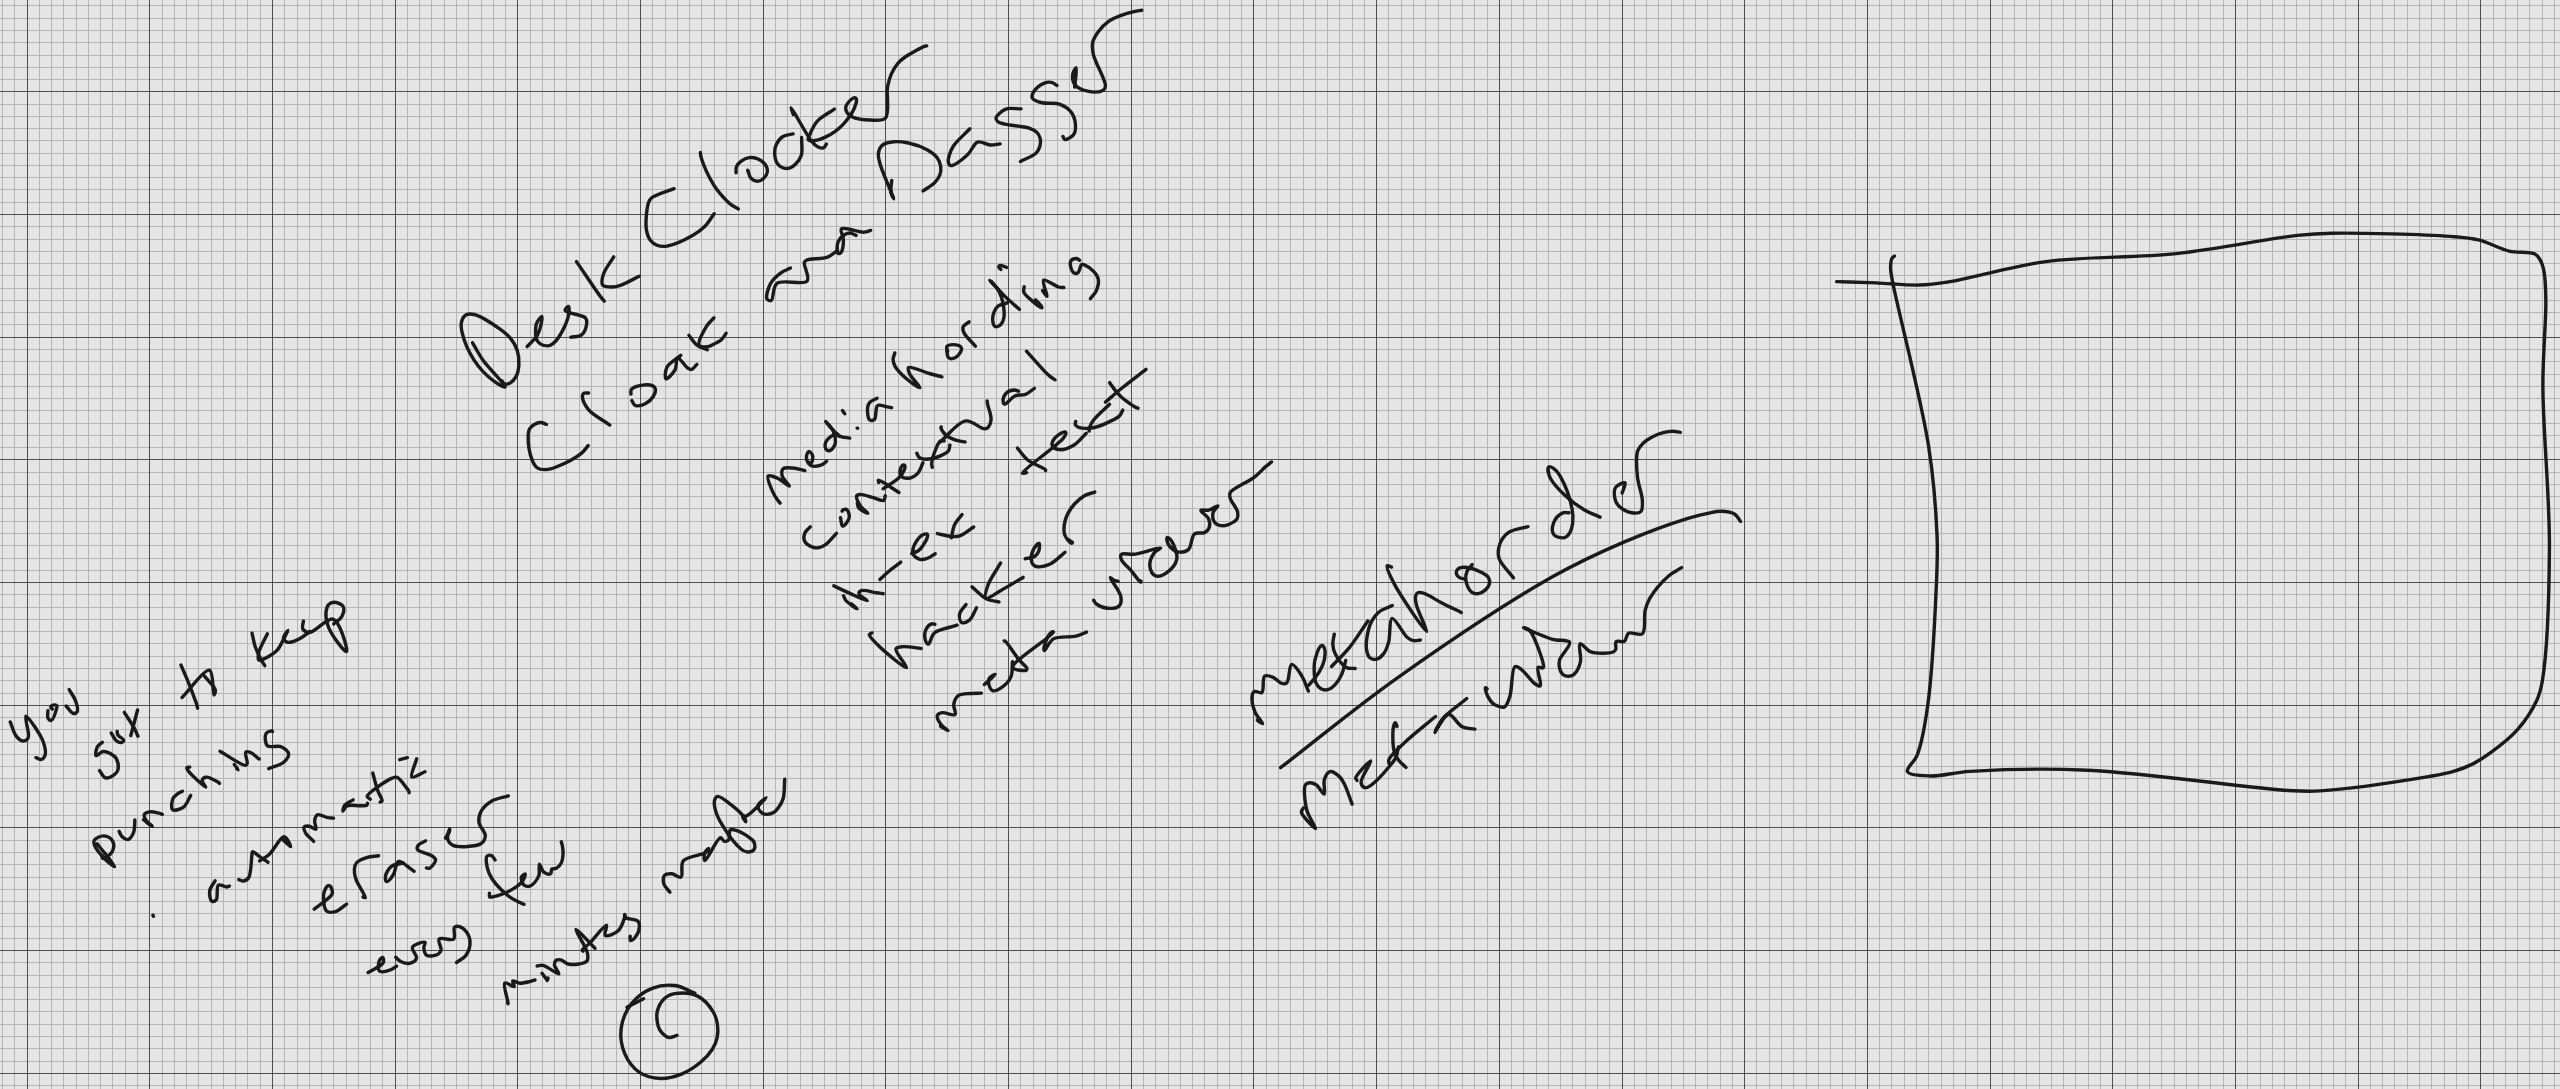 Desk Clocker
Cloak and Dagger
media hording
contextual
hex text
hacker
meta
Metahorder
Meta
you
got to keep
punching
automatic
eraser
every few
minutes maybe
©